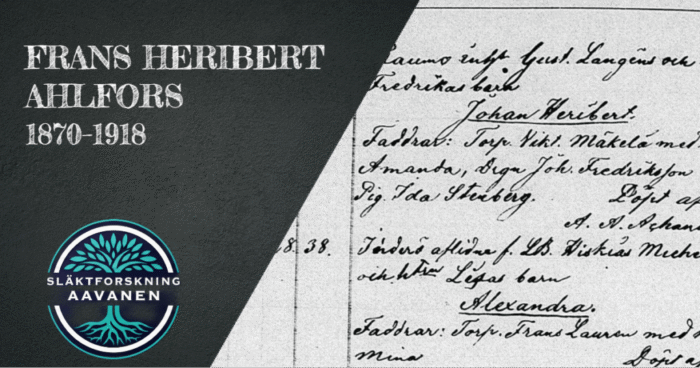 FRANS HERIBERT
AHLFORS
1870-1918
SLÄKTFORSKNING
AAVANEN
Raumo inhys Gust. Langéns och
Fredrikas barn
Johan Heribert.
Faddrar: Torp. Vikt. Mäkelä med
Amanda, Dran Joh. Fredriksson
Pig. Ida Stenberg. Döpt af
A. A. Achan
8. 38.
aflidne f. LB. Hiskias Miche
och h Lisas barn
Alexandra.
Faddrar: Torp. Frans Lauren med
Mina Döpt af